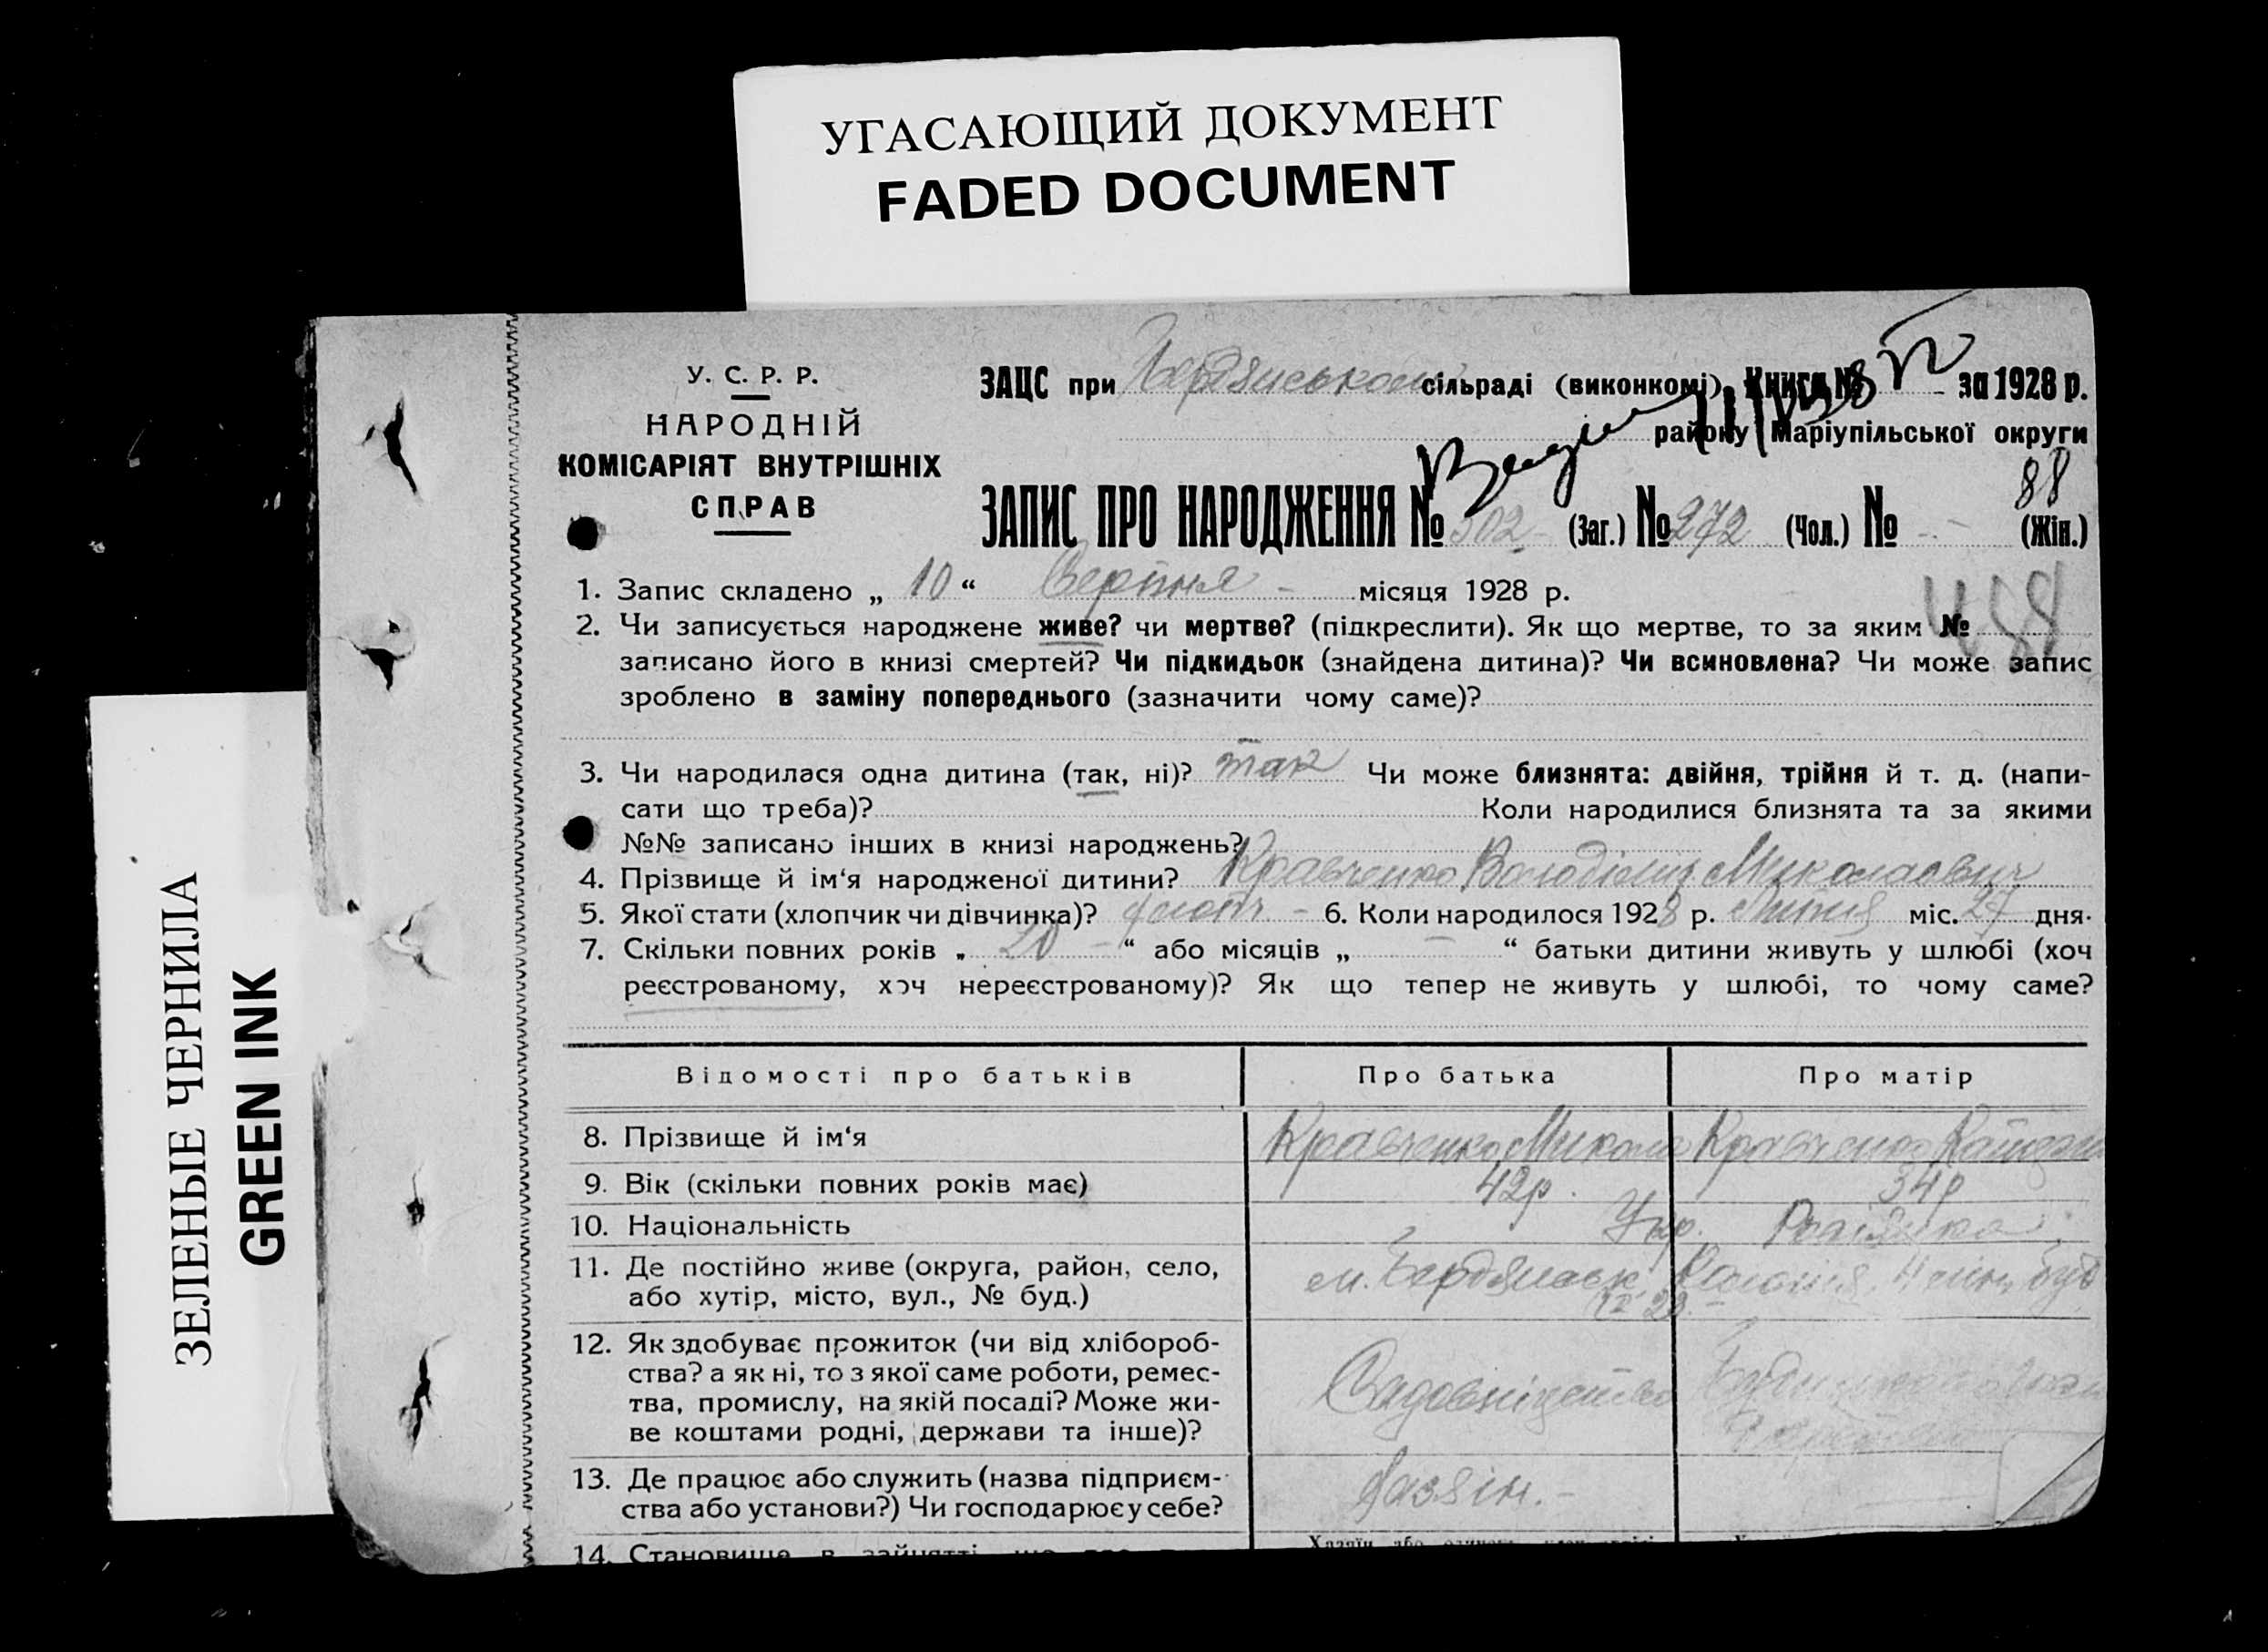 УГАСАЮЩИЙ ДОКУМЕНТ
FADED DOCUMENT
ЗЕЛЕНЫЕ ЧЕРНИЛА
GREEN INK
У. С. Р. Р.
НАРОДНІЙ
КОМІСАРІЯТ ВНУТРІШНІХ
СПРАВ
ЗАЦС при Бердянськом сільраді (виконкомі) Книга № за 1928 р.
району Маріупільської округи
88
ЗАПИС ПРО НАРОДЖЕННЯ № 502 (Заг.) № 272 (Чол.) № - (Жін.)
1. Запис складено „ 10 “ Серпня - місяця 1928 р.
2. Чи записується народжене живе? чи мертве? (підкреслити). Як що мертве, то за яким №
записано його в книзі смертей? Чи підкидьок (знайдена дитина)? Чи всиновлена? Чи може запис
зроблено в заміну попереднього (зазначити чому саме)?
3. Чи народилася одна дитина (так, ні)? так Чи може близнята: двійня, трійня й т. д. (напи-
сати що треба)? Коли народилися близнята та за якими
№№ записано інших в книзі народжень?
4. Прізвище й ім‘я народженої дитини? Кравченко Володімир Миколаович
5. Якої стати (хлопчик чи дівчинка)? хлопч - 6. Коли народилося 1928 р. Липня міс. 27 дня.
7. Скільки повних років „ 20 - “ або місяців „ - “ батьки дитини живуть у шлюбі (хоч
реєстрованому, хоч нереєстрованому)? Як що тепер не живуть у шлюбі, то чому саме?
Відомості про батьків Про батька Про матір
8. Прізвище й ім‘я Кравченко Микола Кравченко
9. Вік (скільки повних років має) 42р. 34р
10. Національність Укр. Росіянка
11. Де постійно живе (округа, район, село, м. Бердянськ Колонія, буд
або хутір, місто, вул., № буд.)
12. Як здобуває прожиток (чи від хлібороб-
ства? а як ні, то з якої саме роботи, ремес-
тва, промислу, на якій посаді? Може жи- Садовніцтво
ве коштами родні, держави та інше)?
13. Де працює або служить (назва підприєм- Хазяін. -
ства або установи?) Чи господарює у себе?
14. Становище в зайнятті